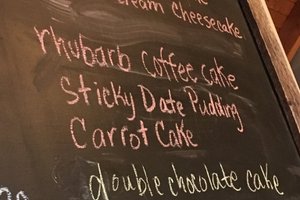 cream Cheesecake
rhubarb coffee cake
Sticky Date Pudding
Carrot Cake
double chocolate cake